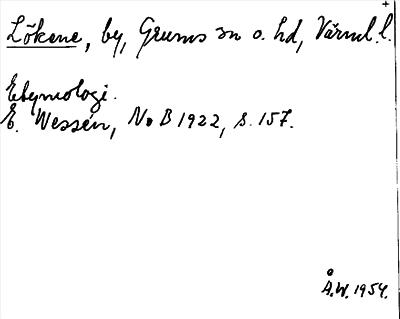 Lökene, by, Grums sn o. hd, Värml. l.
Etymologi.
E. Wessén, NoB 1922, s. 157.
Å.W. 1954.